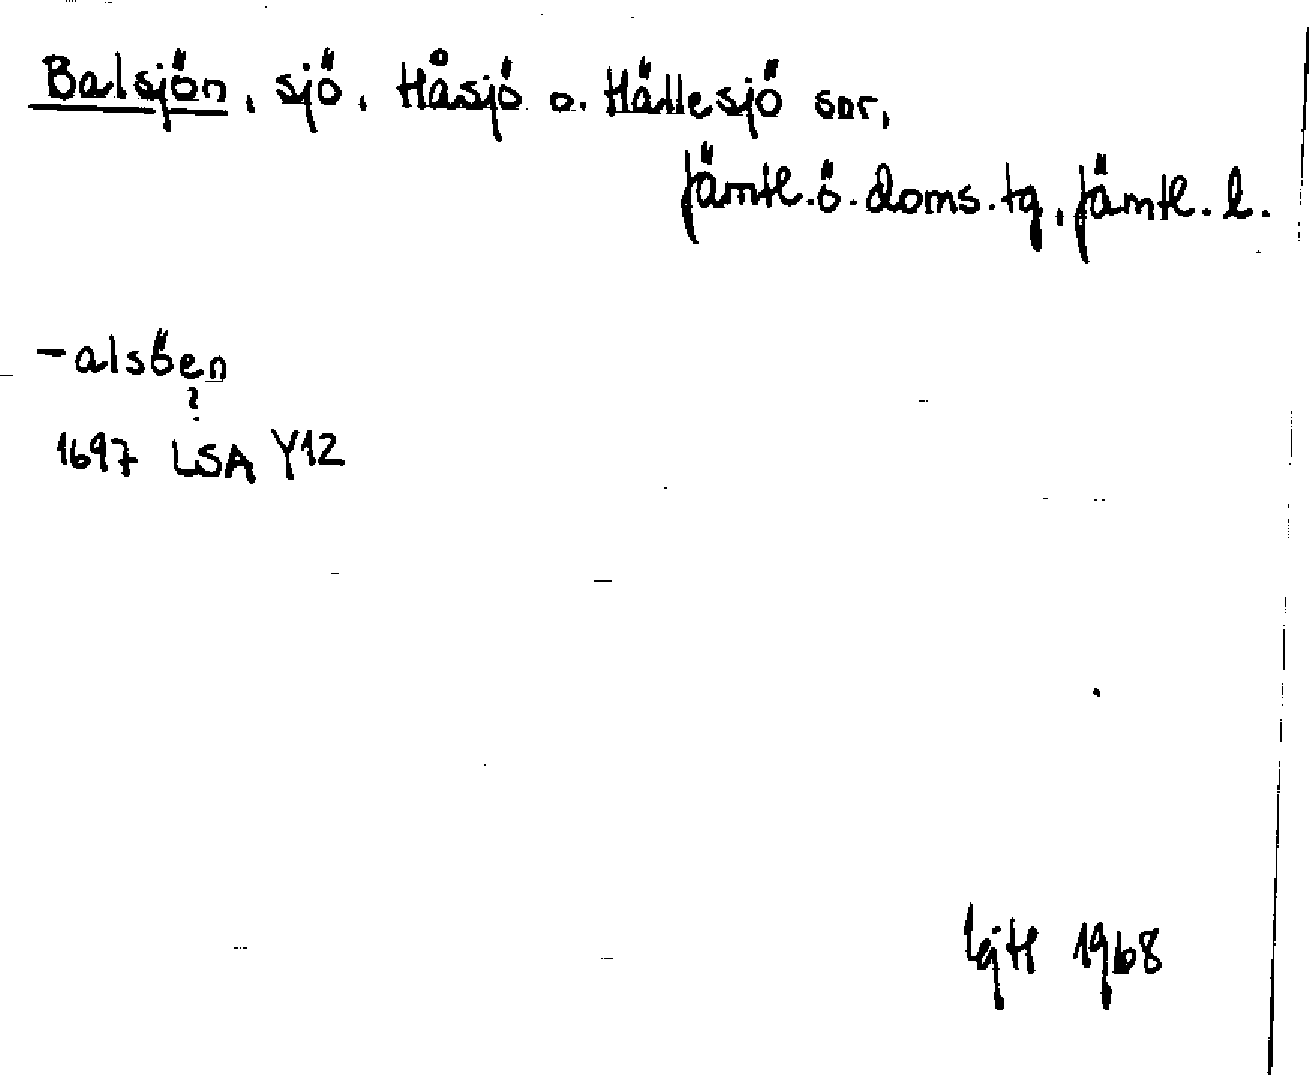 Balsjön, sjö, Håsjö o. Hällesjö snr,
Jämtl. ö. doms. tg, Jämtl. l.
-alsöen
?
1697 LSA Y12
1968